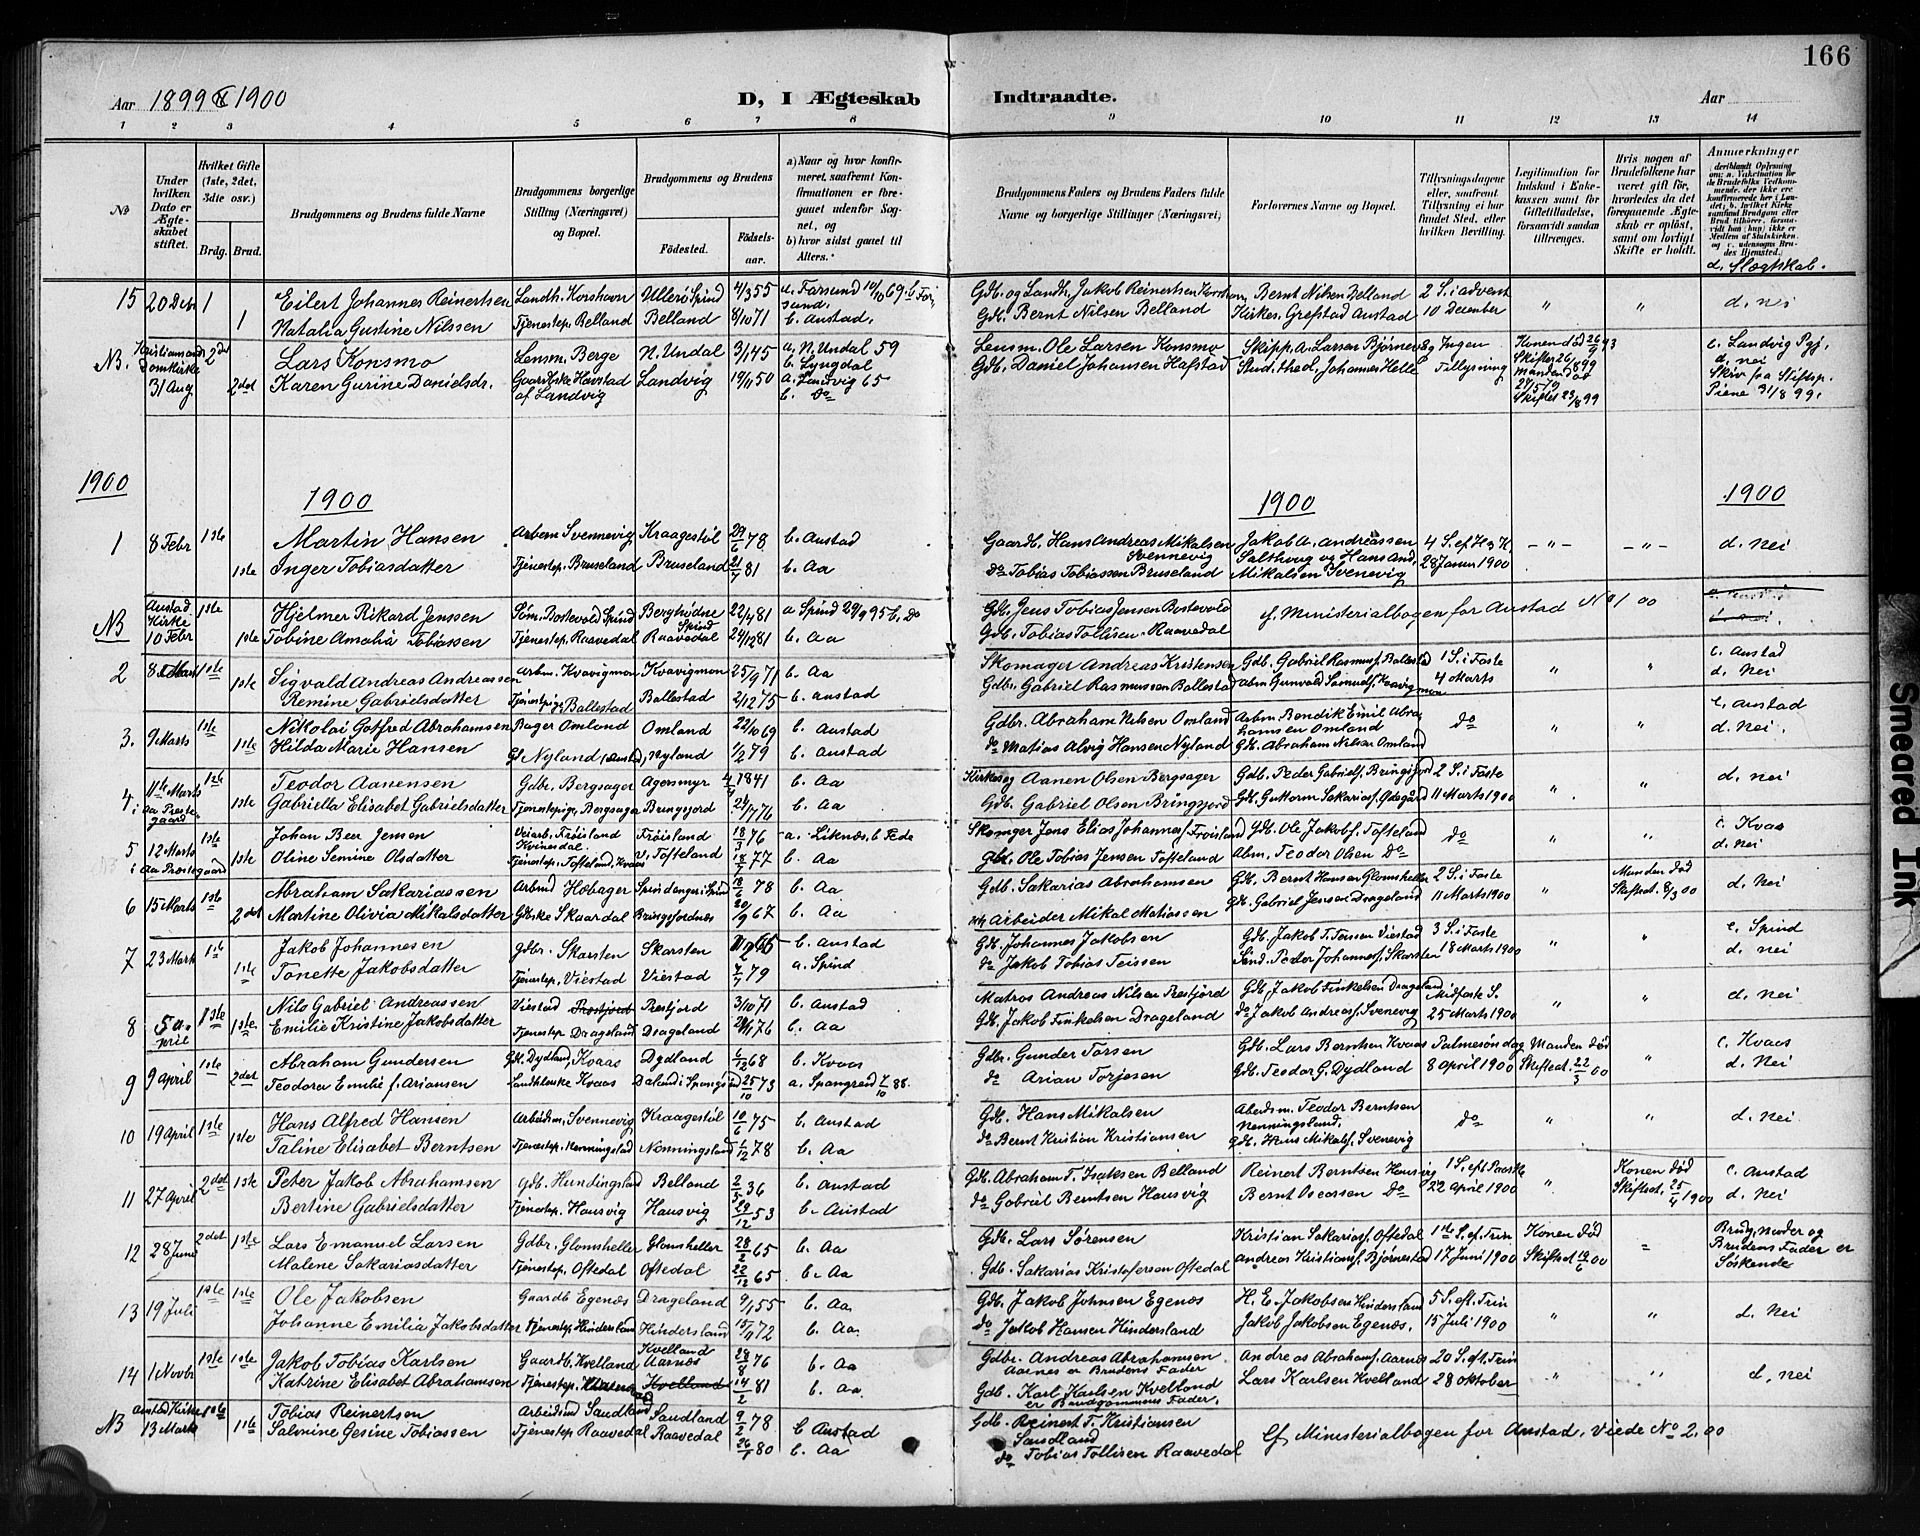 166
Aar 1899 & 1900 D, I Ægteskab Indtraadte. Aar
1 2 3 4 5 6 7 8 9 10 11 12 13 14
No
Under hvilken Dato er Ægteskabet stiftet.
Hvilket Gifte (1ste, 2det, 3die osv.)
Brdg. Brud.
Brudgommens og Brudens fulde Navne
Brudgommens borgerlige Stilling (Næringsvei) og Bopæl.
Brudgommens og Brudens
Födested. Födselsaar.
a) Naar og hvor konfirmeret, saafremt Konfirmationen er foregaaet udenfor Sognet, og
b) hvor sidst gaaet til Alters.
Brudgommens Faders og Brudens Faders fulde Navne og borgerlige Stillinger (Næringsvei)
Forlovernes Navne og Bopæl.
Tillysningsdagene eller, saafremt Tillysning ei har fundet Sted, efter hvilken Bevilling.
Legitimation for Indskud i Enkekassen samt for Giftetilladelse, forsaavidt saadan tiltrænges.
Hvis nogen af Brudefolkene har været gift för, hvorledes da det foregaaende Ægteskab er oplöst, samt om lovligt Skifte er holdt.
Anmerkninger
d. Slægtskab.
15 20 Deb 1 Eilert Johannes Reinertsen Landh. Korshavn Ullerö Spind 4/3 55 a. Farsund 10/10 69 b Farsund. Gdb. og Landh. Jakob Reinertsen Korshavn Bernt Nilsen Belland 2 S. i advent " " d. nei
1 Natalia Gustine Nilssen Tjenestep. Belland Belland 8/10 71 b. Austad. Gdb. Bernt Nilsen Belland Kirkes. Grefstad Austad 10 December
NB. Kristiansands Domkirke 31 Aug 2det Lars Konsmo Lensm. Berge N. Undal 3/1 45 a. N. Undal 59 b. Lyngdal Lensm. Ole Larsen Konsmo Skipp. A. Larsen Bjørnevåg Ingen Konen död c. Landvig Pgj. d. nei
2det Karen Gurine Danielsdr. Gaardbske Havstad af Landvig Landvig 19/11 50 a. Landvig 65 b. Do Gdb. Daniel Johansen Hafstad Stud. theol. Johannes Helle Tillysning Manden död Skiftet 23/8 99 Skriv fra Stiftsp. Piene 31/8 99.
1900 1900 1900 1900
1 8 Febr 1ste Martin Hansen Arbem Svennevig Kraagestöl 29/6 78 b. Austad Gaardb. Hans Andreas Mikalsen Svennevig Jakob A. Andreassen 4 S. ef H3K. -"- -"- d. Nei
1ste Inger Tobiasdatter Tjenestep. Bruseland Bruseland 21/7 81 b. Aa do Tobias Tobiassen Bruseland Salthaug og Hans And. Mikalsen Svenevig 28 Januar 1900
NB Austad Kirke 10 Febr 1ste Hjelmer Rikard Jenssen Söm. Bostevold Spind Berghödne Spind 22/4 81 a Spind 29/9 95 b. Do Gdb. Jens Tobias Jensen Bostevold cf. Ministerialbogen for Austad No 1/00
1ste Tobine Amalia Tobiassen Tjenestep. Raavedal Raavedal 24/12 81 b. Aa Gdb. Tobias Tollisen Raavedal
2 8 Marts 1ste Sigvald Andreas Andreassen Arbm. Kvavigmon Kvavigmon 25/9 71 b. Aa Skomager Andreas Kristensen Gdb. Gabriel Rasmus. Ballestad 1 S. i Faste " " c. Austad
1ste Remine Gabrielsdatter Tjenestepige Ballestad Ballestad 2/12 75 b. Austad Gdbr. Gabriel Rasmussen Ballestad Abm Gunvald Samuels. Kvavigmon 4 Marts d. Nei
3. 9 Marts 1ste Nikolai Gotfred Abrahamsen Bager Omland Omland 22/10 69 b. Austad Gdbr. Abraham Nilsen Omland Arbm. Bendik Emil Abrahamsen Omland do " " c. Austad
1ste Hilda Marie Hansen Gd Nyland (Austad) Nyland 1/2 79 b. Austad do Matias Alvig Hansen Nyland Gdb. Abraham Nilsen Omland d. Nei.
4 11te Marts i Aa Prestegaard 1ste Teodor Aanensen Gdbr. Bergsager Agersmyr 4/9 1841 b. Aa Kirkesog Aanen Olsen Bergsager Gdb. Peder Gabriels. Bringsjord 2 S. i Faste d. nei
1ste Gabriella Elisabet Gabrielsdatter Tjenestepige. Bergsager Bringsjord 24/7 76 b. Aa Gdb. Gabriel Olsen Bringsjord Gdb. Guttorm Sakarias. Ødegård 11 Marts 1900
5 12 Marts i Aa Prestegaard 1ste Johan Beer Jensen Veiarb. Fröisland Kvinesdal Fröisland 18/3 76 a. Liknes, b Fede Skomger Jens Elias Johannes. Fröisland Gdb. Ole Jakobs. Tofteland do " " c. Kvaas
1ste Oline Semine Olsdatter Tjenestep. Tofteland, Kvaas V. Tofteland 18/7 77 b. Aa Gbr. Ole Tobias Jensen Tofteland Abm. Teodor Olsen Do d. Nei
6 15 Marts 1ste Abraham Sakariassen Arbmd Hæbager Spindanger i Spind 18/6 78 b. Aa Gdb. Sakarias Abrahamsen Gdb. Bernt Hansen Glomsheller 2 S. i Faste " Manden död d. Nei
2det Martine Olivia Mikalsdatter Gdbske Skaardal Bringsjordnes 20/9 67 b. Aa Arbeider Mikal Matiassen Gdb. Gabriel Jensen Drageland 11 Marts 1900 Skifteat. 8/3 00
7 23 Marts 1ste Jakob Johannesen Gdbr. Skarsten Skarsten b. Austad Gdb. Johannes Jakobsen Gdb. Jakob T. Tenssen Viestad 3 S. i Faste " " c. Spind
1ste Tonette Jakobsdatter Tjenestep. Viestad Viestad 7/7 79 a. Spind do Jakob Tobias Teissen Sönd. Peder Johannes. Skarsten 18 Marts 1900 d. nei
8 5 April 1ste Nils Gabriel Andreassen Viestad Prestjord Prestjord 3/10 71 b. Austad Matros Andreas Nilsen Prestjord Gdb. Jakob Finkelsen Drageland Midfaste S. " " d. Nei
1ste Emilie Kristine Jakobsdatter Tjenestep. Drageland Drageland 24/1 76 b. Aa Gdb. Jakob Finkelsen Drageland do Jakob Andreas. Svenevig 25 Marts 1900
9 9 April 1ste Abraham Gundersen Gdb. Dydland, Kvaas Dydland 6/12 68 b. Kvaas Gdbr. Gunder Torsen Gdb. Lars Berntsen Kvaas Palmesöndag Manden död " c. Kvaas
2det Teodora Emilie f. Ariansen Landhbske Kvaas Daland i Spangereid 25/10 73 a. Spangreid 7/10 88. do Arian Torjesen Gdb. Teodor G. Dydland 8 April 1900 Skifteat. 22/3 00 d. Nei
10 19 April 1ste Hans Alfred Hansen Arbeidsm. Svennevig Kraagestöl 10/6 75 b. Austad Gdb. Hans Mikalsen Abeidsm. Teodor Berntsen Nenningsland. do " " d. Nei
1ste Taline Elisabet Berntsen Tjenestep. Nenningsland Nenningsland 1/12 78 b. Aa do Bernt Kristian Kristiansen Gdb. Hans Mikals. Svenevig
11 27 April 2det 1ste Peter Jakob Abrahamsen Gdb. Hundingsland Belland 2/5 36 b. Austad Gdb. Abraham T. Isaksen Belland Reinert Berntsen Hausvig 1 S. eft Paaske " Konen död c. Austad
Bertine Gabrielsdatter Tjenestep. Hausvig Hausvig 29/12 53 b. Austad do Gabriel Berntsen Hausvig Bernt Oseassen Do 22 April 1900 Skifteat. 25/4 1900 d. Nei
12 28 Juni 2det 1ste Lars Emanuel Larsen Gdbr. Glomsheller Glomsheller 28/2 65 b. Aa Gdb. Lars Sørensen Kristian Sakarias. Oftedal 1ste S. ef. Trin Konen död " Brudg. moder og
Malene Sakariasdatter Tjenestep. Oftedal Oftedal 22/12 65 b. Aa Gdb. Sakarias Kristofersen Oftedal Andreas Kristians. Bjørnestad 17 Juni 1900 Brudens Fader er Söskende
13 19 Juli 1ste 1ste Ole Jakobsen Gaardb Egenæs Drageland 9/1 55 b. Aa Gdb. Jakob Johnsen Egenæs H. E. Jakobsen Hindersland 5 S. eft. Trin " " d. Nei
Johanne Emilia Jakobsdatter Tjenestep. Hindersland Hindersland 15/11 72 b. Aa do Jakob Hansen Hindersland Jakob Jakobsen Egenæs. 15 Juli 1900
14 1 Novb 1ste 1ste Jakob Tobias Karlsen Gaardb. Kvelland Kvelland Aarnes 28/8 76 b. Aa Gdbr. Andreas Abrahamsen Aarnes er Brudens Fader Andreas Abrahams. Aarnes 20 S. eft. Trin " " d. nei
Katrine Elisabet Abrahamsen Tjenestep. Kvelland 14/2 81 b. Aa Gdb. Karl Karlsen Kvelland er Brudgommens Fader. Lars Karlsen Kvelland 28 Oktober
NB Austad Kirke 13 Marts 1ste Tobias Reinertsen Arbeidsmd Sandland Sandland 9/2 78 b Austad Gdb. Reinert T. Kristiansen Sandland Cf Ministerialbogen for Austad, Viede No 2. 00
1ste Salmine Gesine Tobiassen Tjenestep. Raavedal Raavedal 26/1 80 b. Aa do Tobias Tollisen Raavedal
Smeared Ink